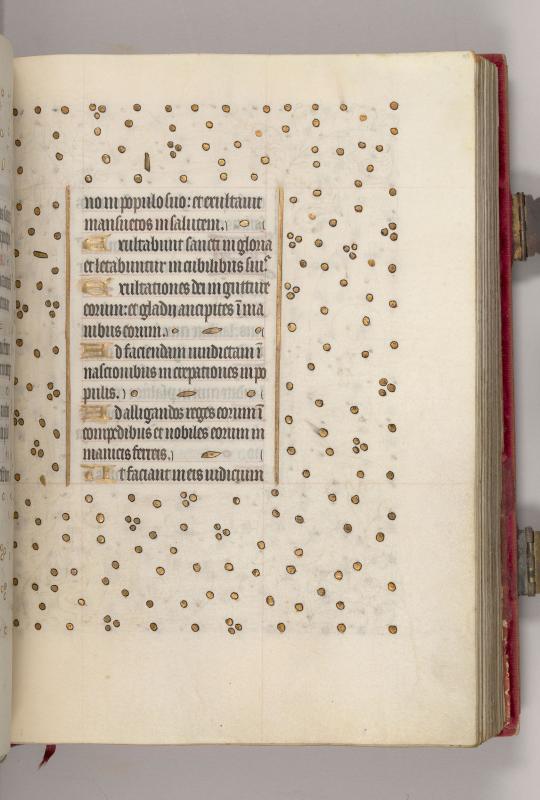 no in populo suo: et exultauit
mansuetos in salutem.
Exultabunt sancti in gloria
et letabuntur in cubilibus suis
Exultationes dei in gutture
eorum: et gladii ancipites ī ma
nibus eorum.
Ad faciendam uindictam ī
nascionibus increpationes in po
pulis.
Ad alligandos reges eorum ī
compedibus et nobiles eorum in
manicis ferreis.
Ut faciant in eis iudicium